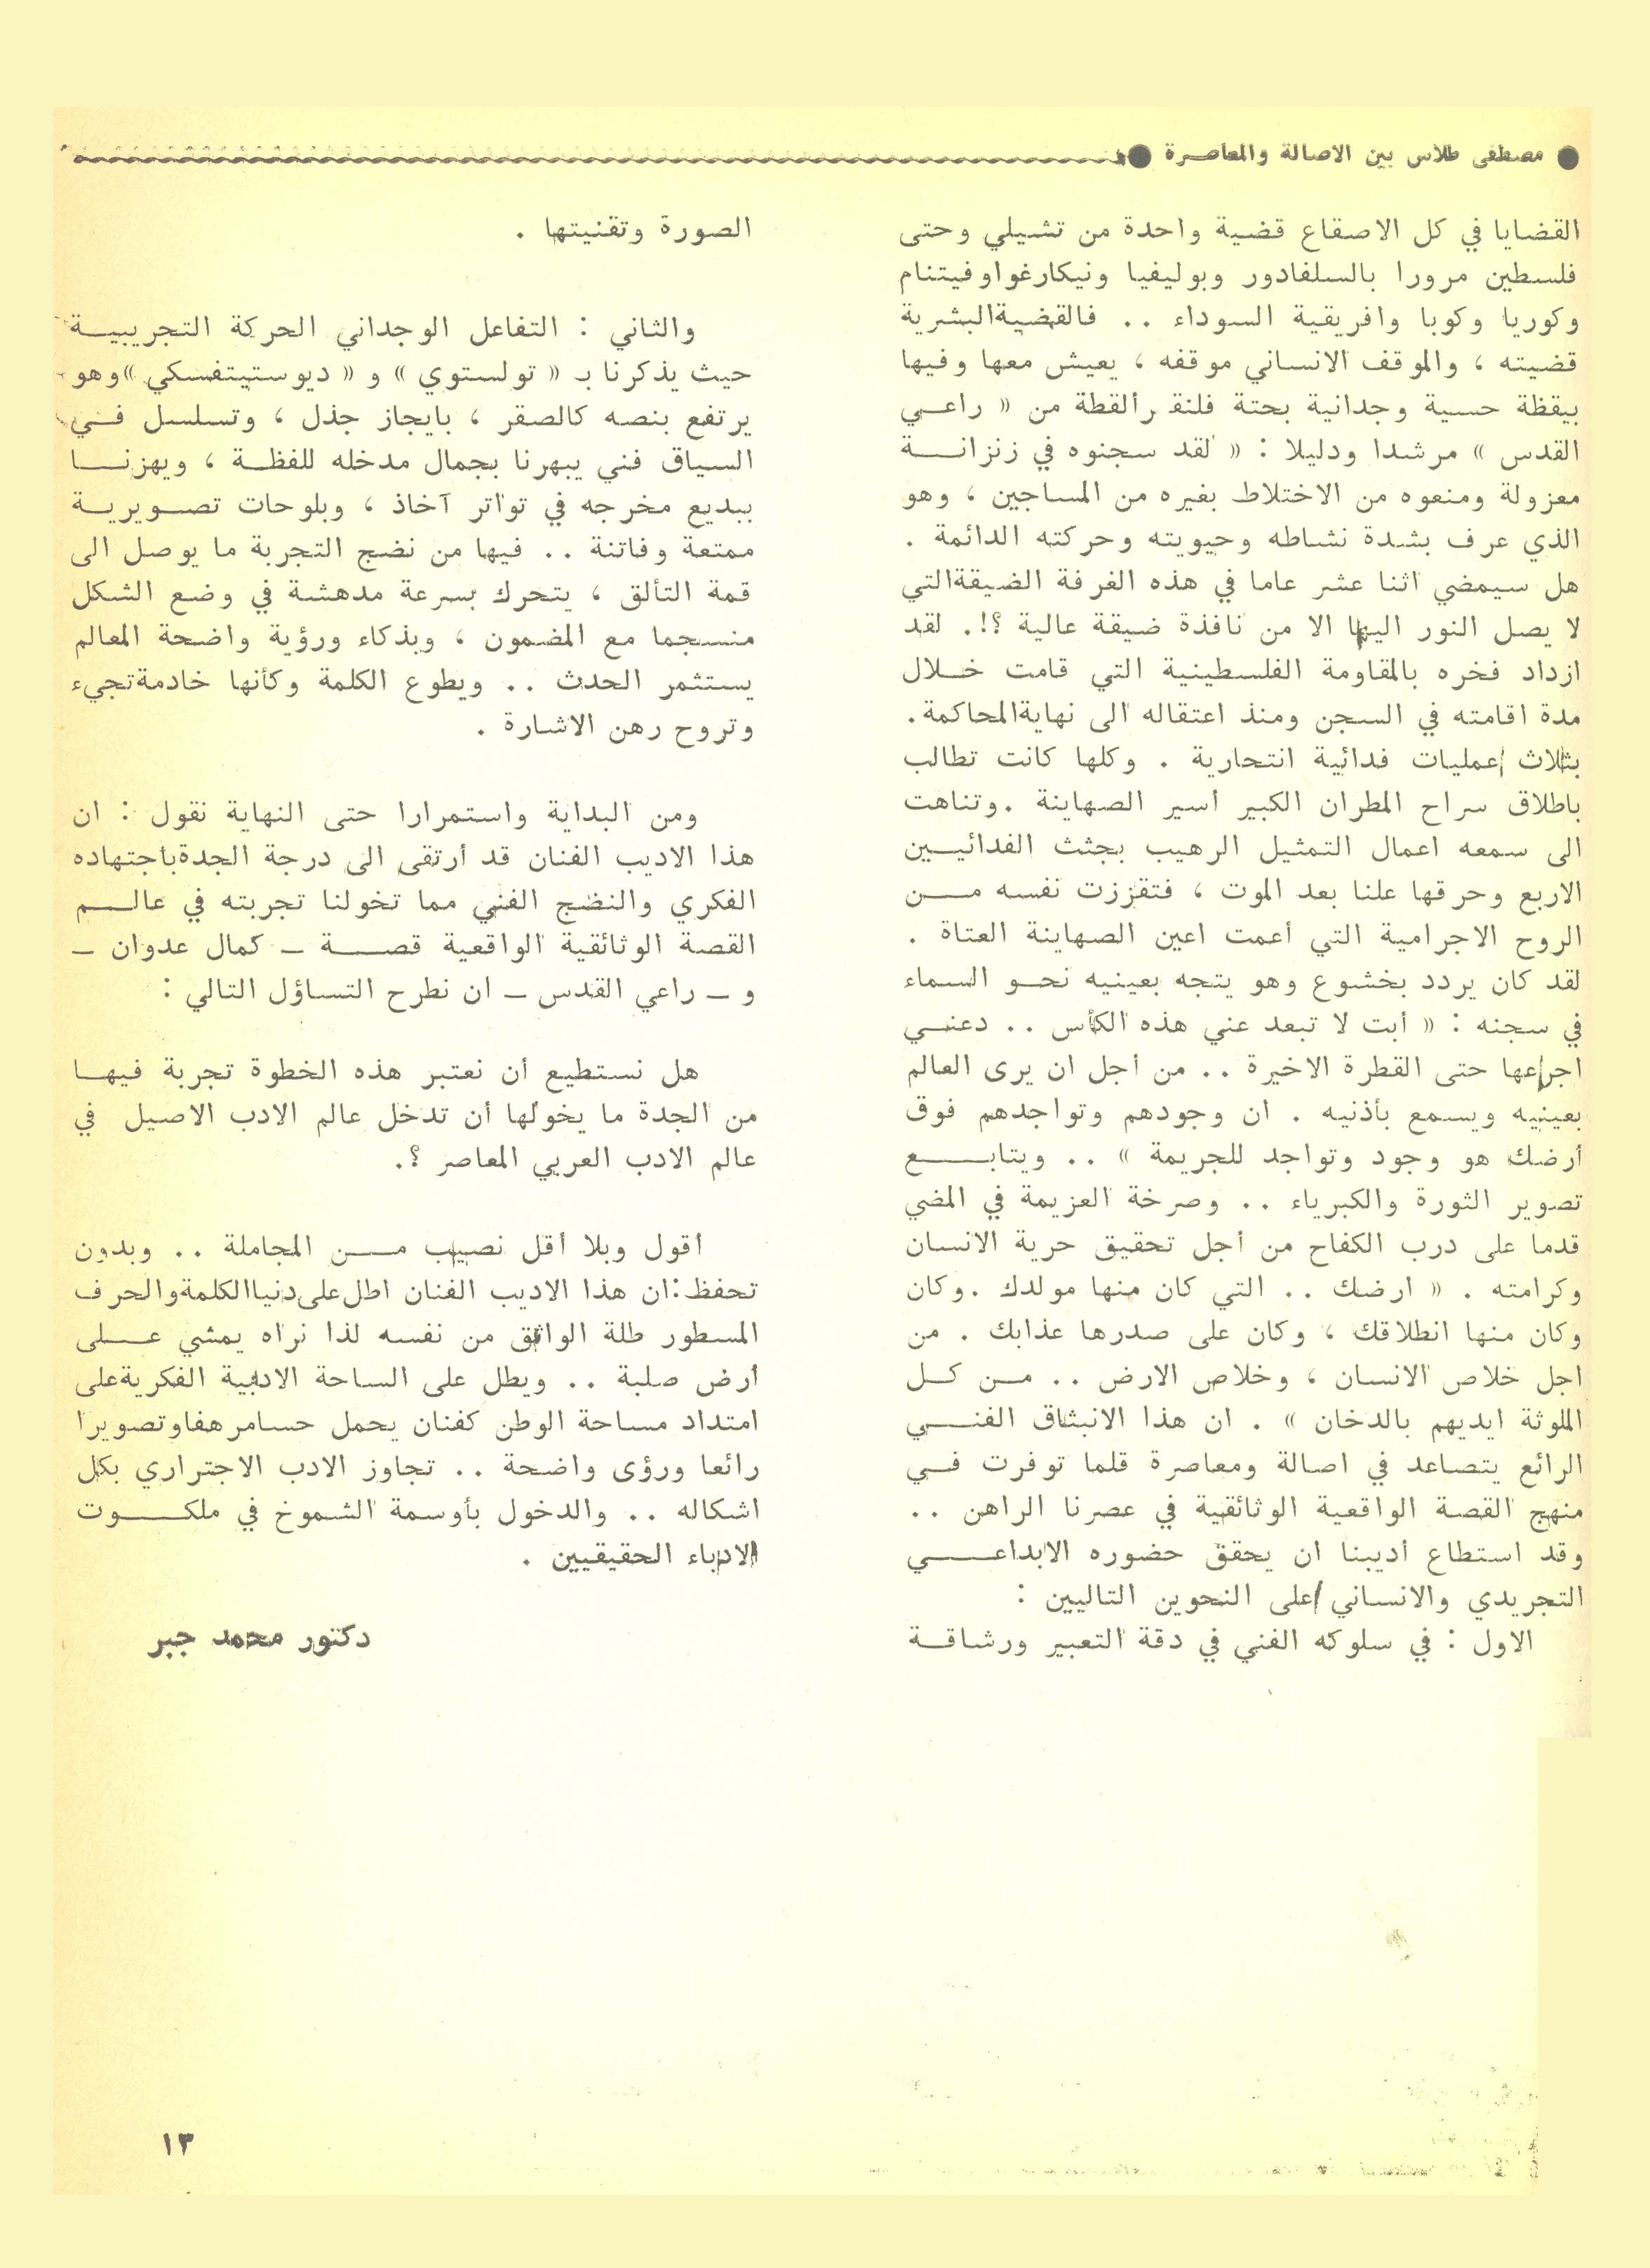 ● مصطفى طلاس بين الاصالة والمعاصرة ●
القضايا في كل الاصقاع قضية واحدة من تشيلي وحتى
فلسطين مرورا بالسلفادور وبوليفيا ونيكارغوا وفيتنام
وكوريا وكوبا وافريقية السوداء .. فالقضية البشرية
قضيته ، والموقف الانساني موقفه ، يعيش معها وفيها
بيقظة حسية وجدانية بحتة فلنقرألقطة من « راعي
القدس » مرشدا ودليلا : « لقد سجنوه في زنزانة
معزولة ومنعوه من الاختلاط بغيره من المساجين ، وهو
الذي عرف بشدة نشاطه وحيويته وحركته الدائمة .
هل سيمضي اثنا عشر عاما في هذه الغرفة الضيقة التي
لا يصل النور اليها الا من نافذة ضيقة عالية ؟!. لقد
ازداد فخره بالمقاومة الفلسطينية التي قامت خلال
مدة اقامته في السجن ومنذ اعتقاله الى نهاية المحاكمة.
بثلاث عمليات فدائية انتحارية . وكلها كانت تطالب
باطلاق سراح المطران الكبير أسير الصهاينة . وتناهت
الى سمعه اعمال التمثيل الرهيب بجثث الفدائيين
الاربع وحرقها علنا بعد الموت ، فتقززت نفسه من
الروح الاجرامية التي أعمت اعين الصهاينة العتاة .
لقد كان يردد بخشوع وهو يتجه بعينيه نحو السماء
في سجنه : « أبت لا تبعد عني هذه الكأس .. دعني
اجرعها حتى القطرة الاخيرة .. من أجل ان يرى العالم
بعينيه ويسمع بأذنيه . ان وجودهم وتواجدهم فوق
أرضك هو وجود وتواجد للجريمة » .. ويتابع
تصوير الثورة والكبرياء .. وصرخة العزيمة في المضي
قدما على درب الكفاح من أجل تحقيق حرية الانسان
وكرامته . « ارضك .. التي كان منها مولدك . وكان
وكان منها انطلاقك ، وكان على صدرها عذابك . من
اجل خلاص الانسان ، وخلاص الارض .. من كل
الملوثة ايديهم بالدخان » . ان هذا الانبثاق الفني
الرائع يتصاعد في اصالة ومعاصرة قلما توفرت في
منهج القصة الواقعية الوثائقية في عصرنا الراهن ..
وقد استطاع أديبنا ان يحقق حضوره الابداعي
التجريدي والانساني على النحوين التاليين :
الاول : في سلوكه الفني في دقة التعبير ورشاقة
الصورة وتقنيتها .
والثاني : التفاعل الوجداني الحركة التجريبية
حيث يذكرنا بـ « تولستوي » و « ديوستيتفسكي » وهو
يرتفع بنصه كالصقر ، بايجاز جذل ، وتسلسل في
السياق فني يبهرنا بجمال مدخله للفظة ، ويهزنا
ببديع مخرجه في تواتر آخاذ ، وبلوحات تصويرية
ممتعة وفاتنة .. فيها من نضج التجربة ما يوصل الى
قمة التألق ، يتحرك بسرعة مدهشة في وضع الشكل
منسجما مع المضمون ، وبذكاء ورؤية واضحة المعالم
يستثمر الحدث .. ويطوع الكلمة وكأنها خادمة تجيء
وتروح رهن الاشارة .
ومن البداية واستمرارا حتى النهاية نقول : ان
هذا الاديب الفنان قد أرتقى الى درجة الجدة باجتهاده
الفكري والنضج الفني مما تخولنا تجربته في عالم
القصة الوثائقية الواقعية قصة – كمال عدوان –
و – راعي القدس – ان نطرح التساؤل التالي :
هل نستطيع أن نعتبر هذه الخطوة تجربة فيها
من الجدة ما يخولها أن تدخل عالم الادب الاصيل في
عالم الادب العربي المعاصر ؟.
أقول وبلا أقل نصيب من المجاملة .. وبدون
تحفظ : ان هذا الاديب الفنان اطل على دنيا الكلمة والحرف
المسطور طلة الواثق من نفسه لذا نراه يمشي على
أرض صلبة .. ويطل على الساحة الادبية الفكرية على
امتداد مساحة الوطن كفنان يحمل حسا مرهفا وتصويرا
رائعا ورؤى واضحة .. تجاوز الادب الاجتراري بكل
اشكاله .. والدخول بأوسمة الشموخ في ملكوت
الادباء الحقيقيين .
دكتور محمد جبر
١٣